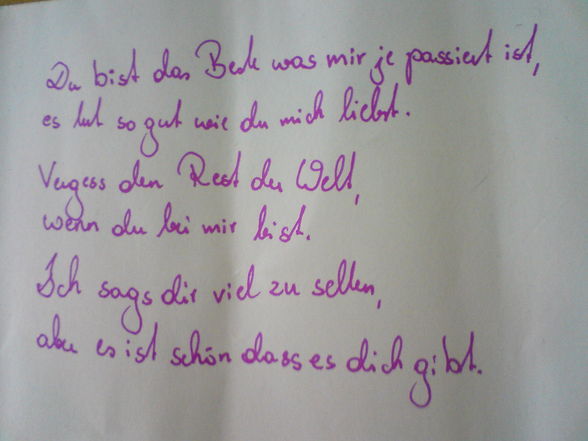 Du bist das Beste was mir je passiert ist,
es tut so gut wie du mich liebst.
Vergess den Rest der Welt,
wenn du bei mir bist.
Ich sags dir viel zu selten,
aber es ist schön dass es dich gibt.